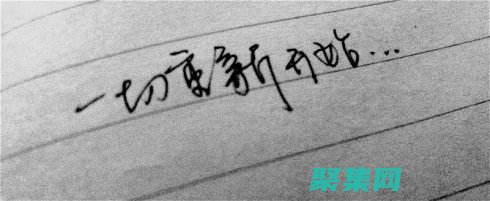 一切重新开始...
聚集网